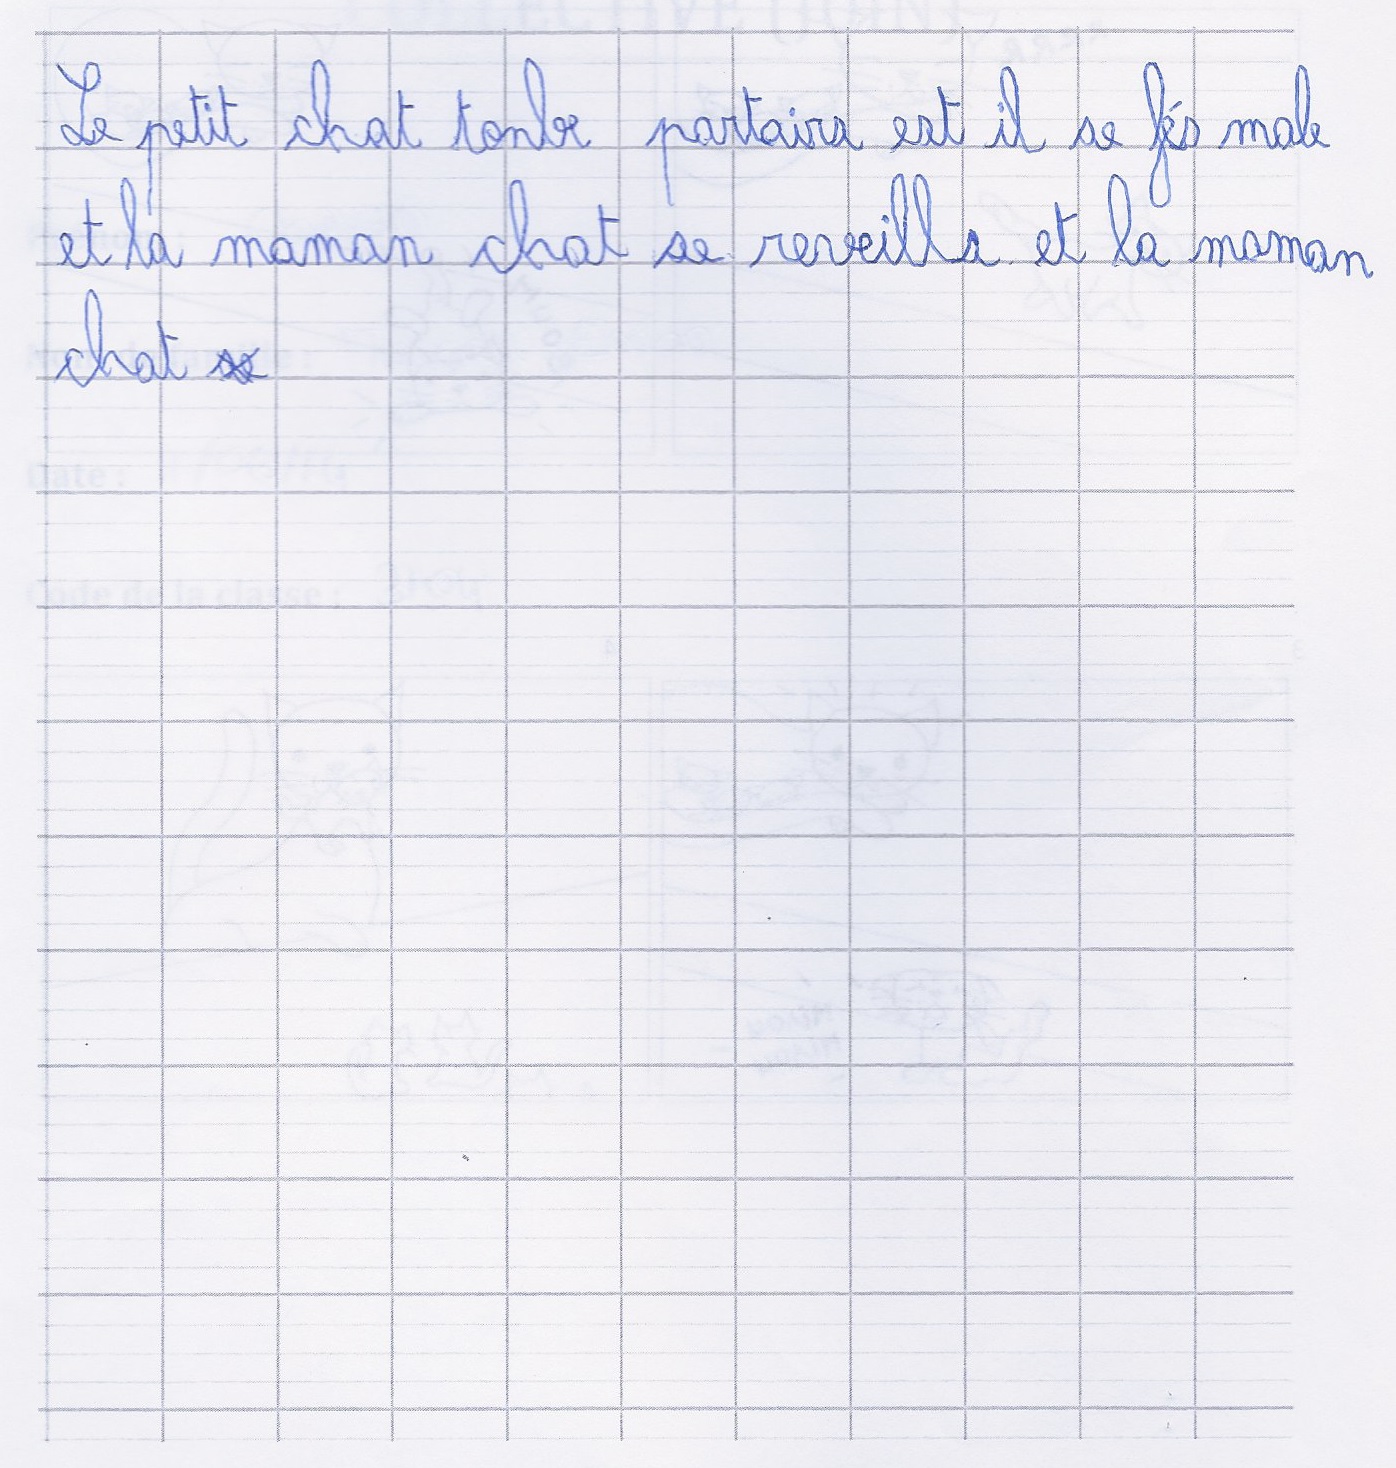 Le petit chat tonbe partaira est il se fés male
et la maman chat se reveilla et la maman
chat
Date :
Code de la classe :